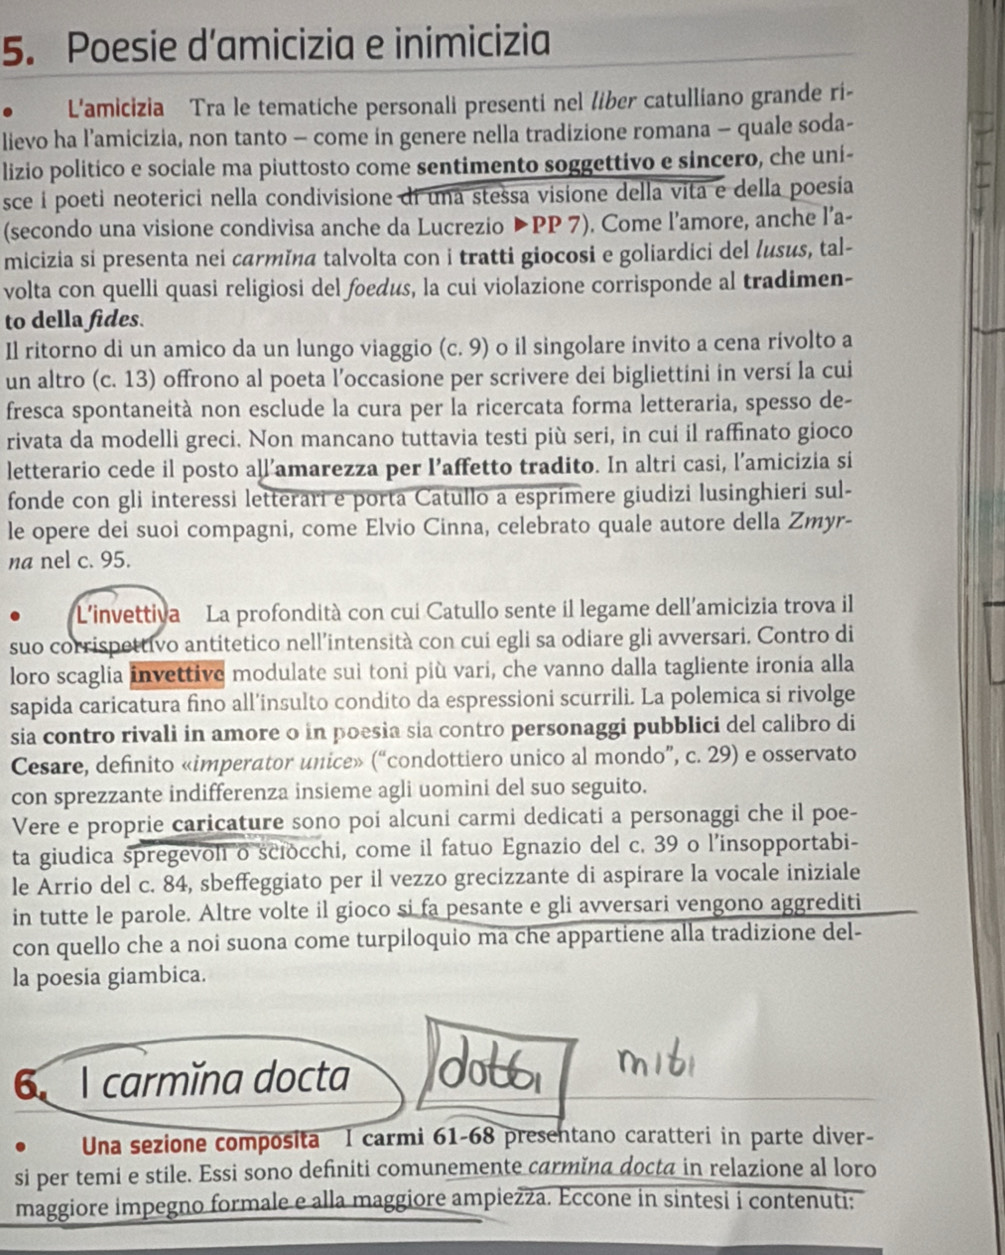 5. Poesie d'amicizia e inimicizia
• L'amicizia Tra le tematiche personali presenti nel liber catulliano grande ri-
lievo ha l'amicizia, non tanto – come in genere nella tradizione romana – quale soda-
lizio politico e sociale ma piuttosto come sentimento soggettivo e sincero, che uni-
sce i poeti neoterici nella condivisione di una stessa visione della vita e della poesia
(secondo una visione condivisa anche da Lucrezio ▶PP 7). Come l'amore, anche l'a-
micizia si presenta nei carmĭna talvolta con i tratti giocosi e goliardici del lusus, tal-
volta con quelli quasi religiosi del foedus, la cui violazione corrisponde al tradimen-
to della fides.
Il ritorno di un amico da un lungo viaggio (c. 9) o il singolare invito a cena rivolto a
un altro (c. 13) offrono al poeta l'occasione per scrivere dei bigliettini in versi la cui
fresca spontaneità non esclude la cura per la ricercata forma letteraria, spesso de-
rivata da modelli greci. Non mancano tuttavia testi più seri, in cui il raffinato gioco
letterario cede il posto all'amarezza per l'affetto tradito. In altri casi, l'amicizia si
fonde con gli interessi letterari e porta Catullo a esprimere giudizi lusinghieri sul-
le opere dei suoi compagni, come Elvio Cinna, celebrato quale autore della Zmyr-
na nel c. 95.
• L'invettiva La profondità con cui Catullo sente il legame dell'amicizia trova il
suo corrispettivo antitetico nell'intensità con cui egli sa odiare gli avversari. Contro di
loro scaglia invettive modulate sui toni più vari, che vanno dalla tagliente ironia alla
sapida caricatura fino all'insulto condito da espressioni scurrili. La polemica si rivolge
sia contro rivali in amore o in poesia sia contro personaggi pubblici del calibro di
Cesare, definito «imperator unice» ("condottiero unico al mondo", c. 29) e osservato
con sprezzante indifferenza insieme agli uomini del suo seguito.
Vere e proprie caricature sono poi alcuni carmi dedicati a personaggi che il poe-
ta giudica spregevoli o sciocchi, come il fatuo Egnazio del c. 39 o l'insopportabi-
le Arrio del c. 84, sbeffeggiato per il vezzo grecizzante di aspirare la vocale iniziale
in tutte le parole. Altre volte il gioco si fa pesante e gli avversari vengono aggrediti
con quello che a noi suona come turpiloquio ma che appartiene alla tradizione del-
la poesia giambica.
6. I carmĭna docta dotti miti
• Una sezione composita I carmi 61-68 presentano caratteri in parte diver-
si per temi e stile. Essi sono definiti comunemente carmĭna docta in relazione al loro
maggiore impegno formale e alla maggiore ampiezza. Eccone in sintesi i contenuti: